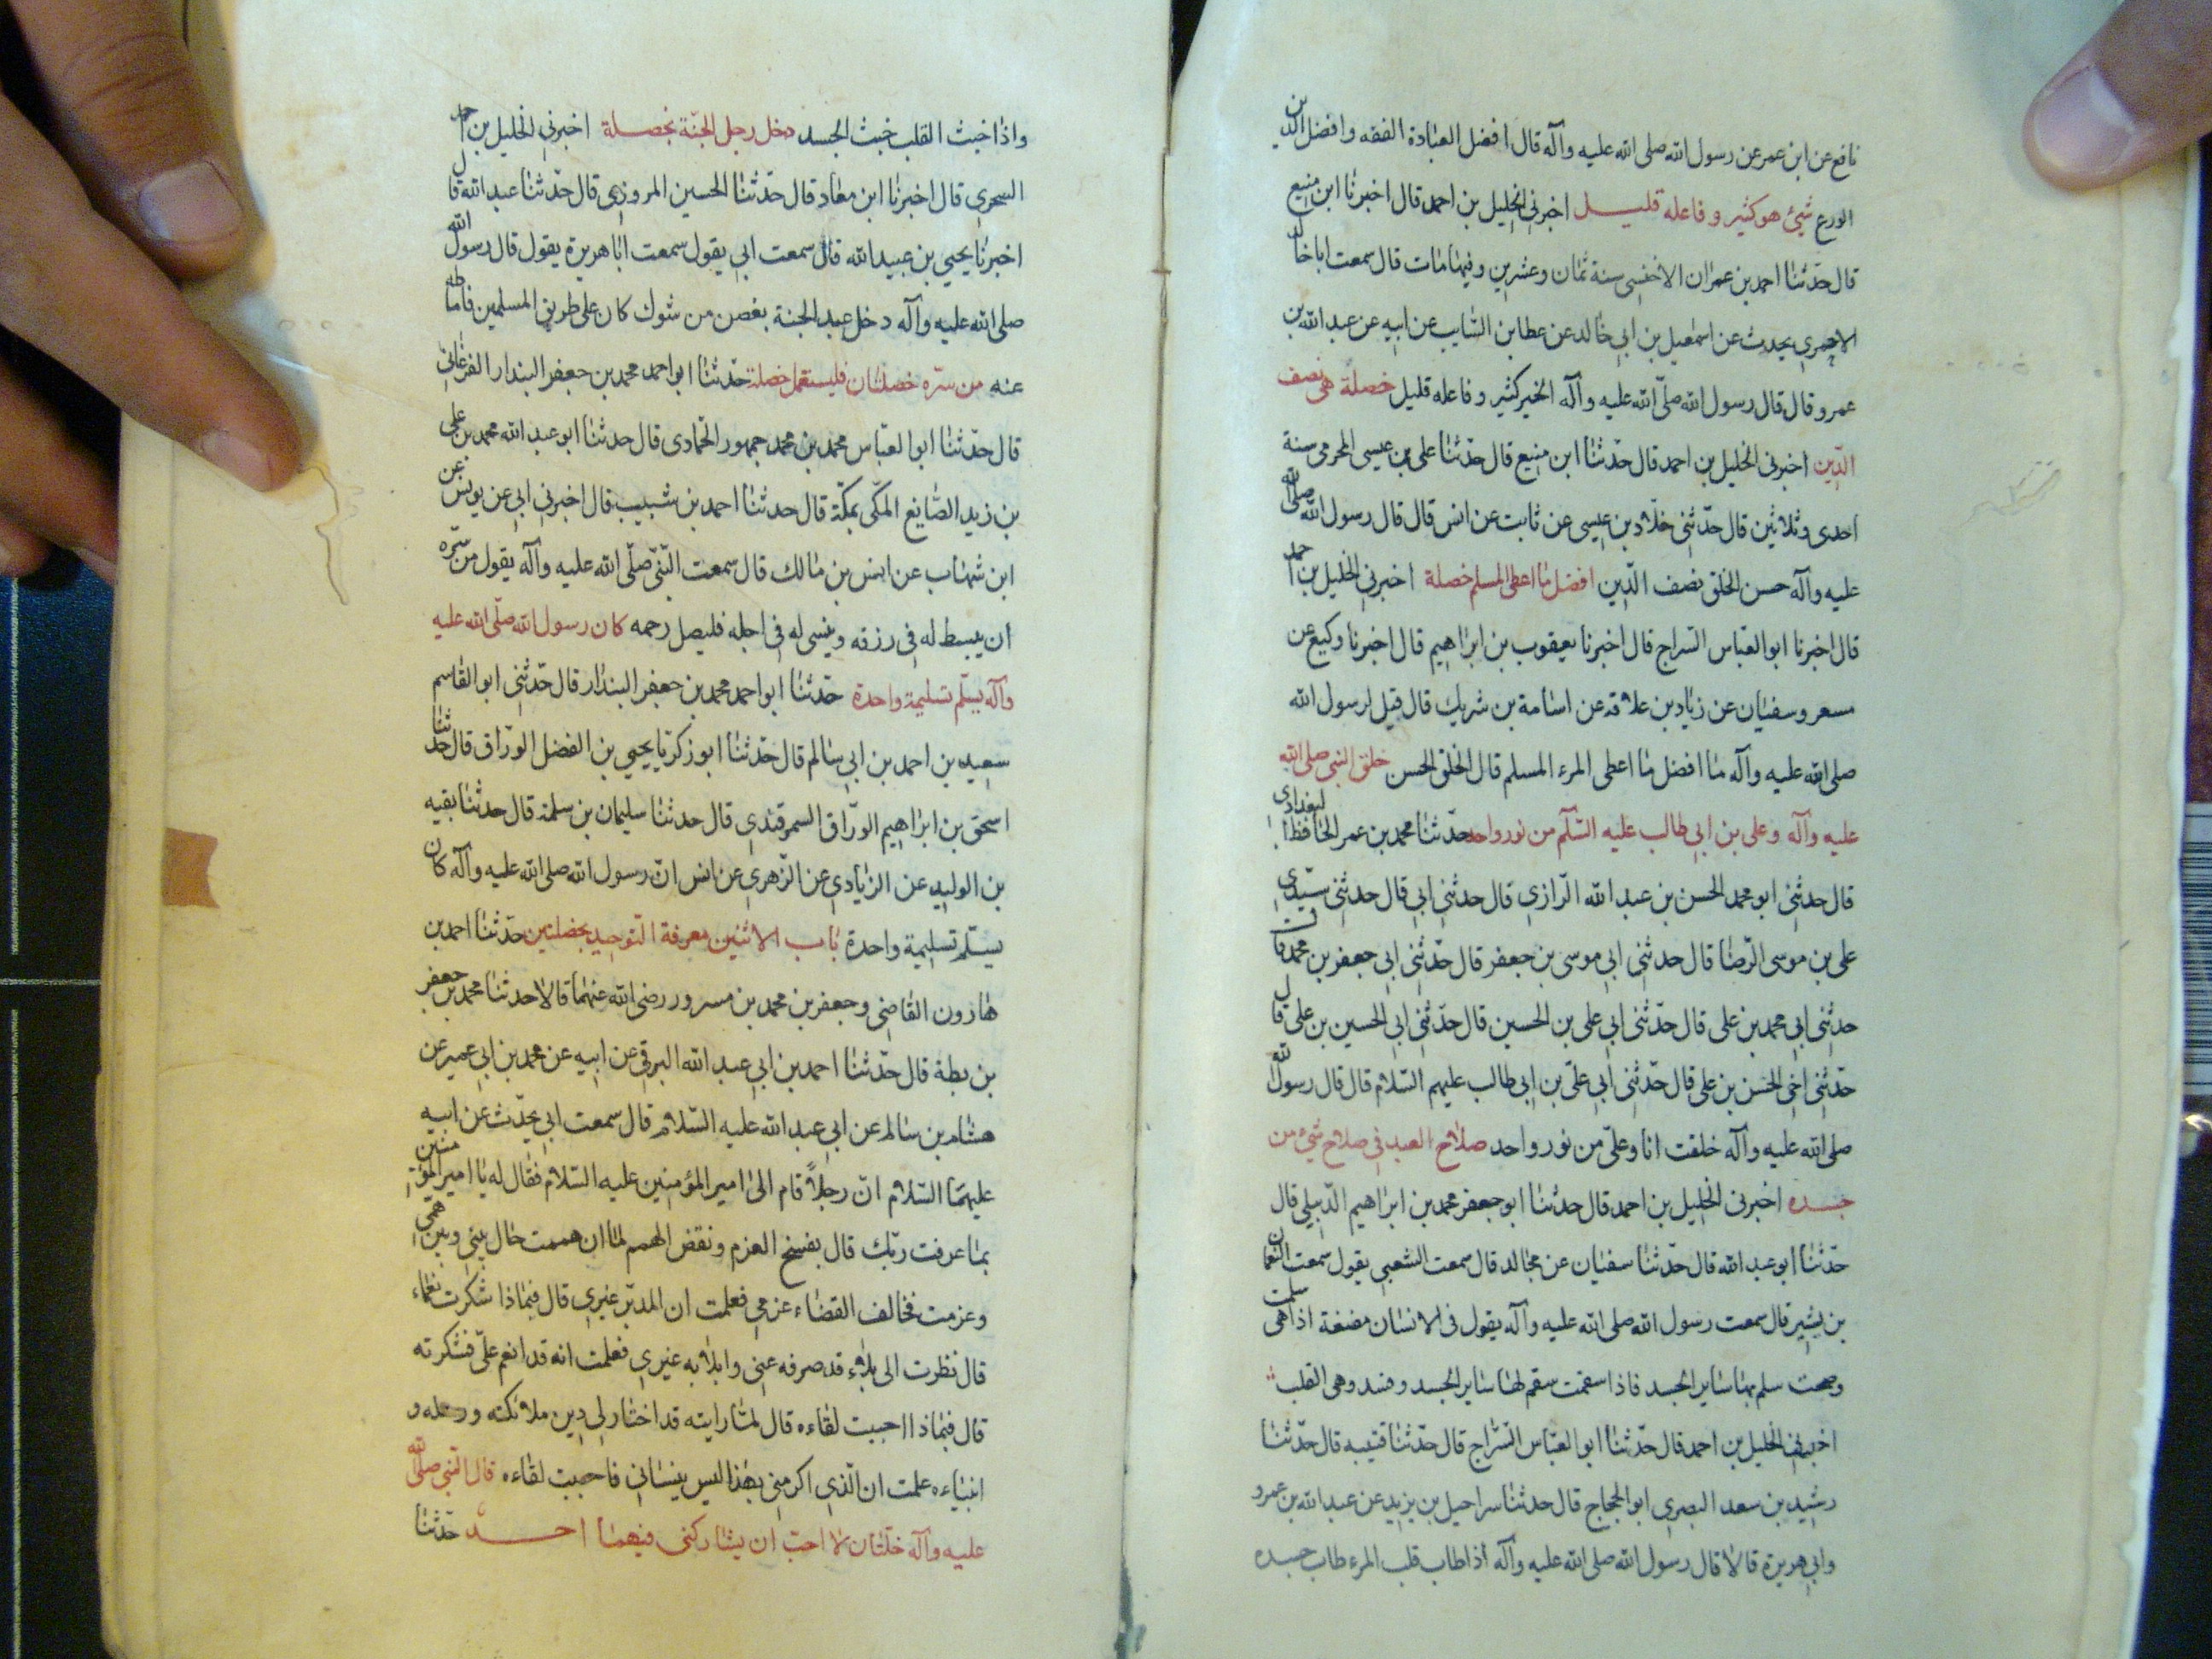 نافع عن ابن عمر عن رسول الله صلى الله عليه وآله قال افضل العبادة الفقه وافضل الدين
الورع شيئ هو كثير وفاعله قليل اخبرنى الخليل بن احمد قال اخبرنا ابن منيع
قال حدثنا احمد بن عمران الاخنسى سنة ثمان وعشرين وفيها مات قال سمعت ابا خالد
الاحمرى يحدث عن اسمعيل بن ابى خالد عن عطا بن السايب عن ابيه عن عبد الله بن
عمرو قال قال رسول الله صلّى الله عليه وآله الخير كثير وفاعله قليل خصلة هى نصف
الدّين اخبرنى الخليل بن احمد قال حدّثنا ابن منيع قال حدّثنا على بن عيسى المخرمى سنة
احدى وثلاثين قال حدّثنى خلاد بن عيسى عن ثابت عن انس قال قال رسول الله صلى الله
عليه وآله حسن الخلق نصف الدّين افضل ما اعطى المسلم خصلة اخبرنى الخليل بن احمد
قال اخبرنا ابو العبّاس السّراج قال اخبرنا يعقوب بن ابراهيم قال اخبرنا وكيع عن
مسعر وسفيان عن زياد بن علاقه عن اسامة بن شريك قال قيل لرسول الله
صلى الله عليه وآله ما افضل ما اعطى المرء المسلم قال الخلق الحسن خلق النبى صلى الله
عليه وآله وعلى بن ابى طالب عليه السّلم من نور واحد حدّثنا محمد بن عمر الحافظ البغدادى
قال حدثنى ابو محمد الحسن بن عبد الله الرّازى قال حدثنى ابى قال حدثنى سيّدى
على بن موسى الرّضا قال حدثنى ابى موسى بن جعفر قال حدّثنى ابى جعفر بن محمد قال
حدثنى ابى محمد بن على قال حدّثنى ابى على بن الحسين قال حدّثنى ابى الحسين بن على قال
حدّثنى اخى الحسن بن على قال حدّثنى ابى علىّ بن ابى طالب عليهم السّلام قال قال رسول الله
صلى الله عليه وآله خلقت انا وعلىّ من نور واحد صلاح العبد فى صلاح شيئ من
جسده اخبرنى الخليل بن احمد قال حدثنا ابو جعفر محمد بن ابراهيم الدّيبلى قال
حدّثنا ابو عبد الله قال حدّثنا سفيان عن مجالد قال سمعت الشعبى يقول سمعت النعمان
بن بشير قال سمعت رسول الله صلى الله عليه وآله يقول فى الانسان مضغة اذا هى سلمت
وصحت سلم بها ساير الجسد فاذا سقمت سقم لها ساير الجسد وفسد وهى القلب
اخبرنى الخليل بن احمد قال حدّثنا ابو العبّاس السّراج قال حدّثنا قتيبه قال حدّثنا
رشيد بن سعد البصرى ابو الحجاج قال حدثنا سراحيل بن يزيد عن عبد الله بن عمرو
وابى هريرة قالا قال رسول الله صلى الله عليه وآله اذا طاب قلب المرء طاب جسده
واذا خبث القلب خبث الجسد دخل رجل الجنّة بخصلة اخبرنى الخليل بن احمد
السجرى قال اخبرنا ابن معاد قال حدّثنا الحسين المروزى قال حدّثنا عبد الله قال
اخبرنا يحيى بن عبيد الله قال سمعت ابى يقول سمعت ابا هريرة يقول قال رسول الله
صلى الله عليه وآله دخل عبد الجنة بغصن من شوك كان على طريق المسلمين فاماطه
عنه من سرّه خصلتان فليستعمل خصلة حدّثنا ابو احمد محمد بن جعفر البندار الفرغانى
قال حدّثنا ابو العبّاس محمد بن محمد جمهور الحمّادى قال حدثنا ابو عبد الله محمد بن على
بن زيد الصّايغ المكّى بمكّة قال حدثنا احمد بن شبيب قال اخبرنى ابى عن يونس عن
ابن شهاب عن انس بن مالك قال سمعت النّبىّ صلّى الله عليه وآله يقول من سرّه
ان يبسط له فى رزقه وينسى له فى اجله فليصل رحمه كان رسول الله صلّى الله عليه
وآله يسلّم تسليمة واحدة حدّثنا ابو احمد محمد بن جعفر البندار قال حدّثنى ابو القاسم
سعيد بن احمد بن ابى سالم قال حدّثنا ابو زكريّا يحيى بن الفضل الورّاق قال حدّثنا
اسحق بن ابراهيم الورّاق السمرقندى قال حدثنا سليمان بن سلمة قال حدثنا بقيه
بن الوليد عن الزّيادى عن الزّهرى عن انس انّ رسول الله صلى الله عليه وآله كان
يسلّم تسليمة واحدة باب الاثنين معرفة التوحيد بخصلتين حدّثنا احمد بن
هارون القاضى وجعفر بن محمد بن مسرور رضى الله عنهما قالا حدثنا محمد بن جعفر
بن بطة قال حدّثنا احمد بن ابى عبد الله البرقى عن ابيه عن محمد بن ابى عمير عن
هشام بن سالم عن ابى عبد الله عليه السّلام قال سمعت ابى يحدّث عن ابيه
عليهما السّلام انّ رجلاً قام الى امير المؤمنين عليه السّلام فقال له يا امير المؤمنين
بما عرفت ربّك قال بفسخ العزم ونقض الهمم لما ان هممت حال بينى وبين همى
وعزمت فخالف القضاء عزمى فعلمت ان المدبّر غيرى قال فبماذا شكرت نعماءه
قال نظرت الى بلاء قد صرفه عنى وابلا به غيرى فعلمت انه قد انعم علىّ فشكرته
قال فبماذا احببت لقاءه قال لمّا رايته قد اختار لى دين ملائكته ورسله و
انبياءه علمت ان الّذى اكرمنى بهذا ليس ينسانى فاحببت لقاءه قال النبى صلى الله
عليه وآله خلّتان لا احبّ ان يشاركنى فيهما احد حدّثنا